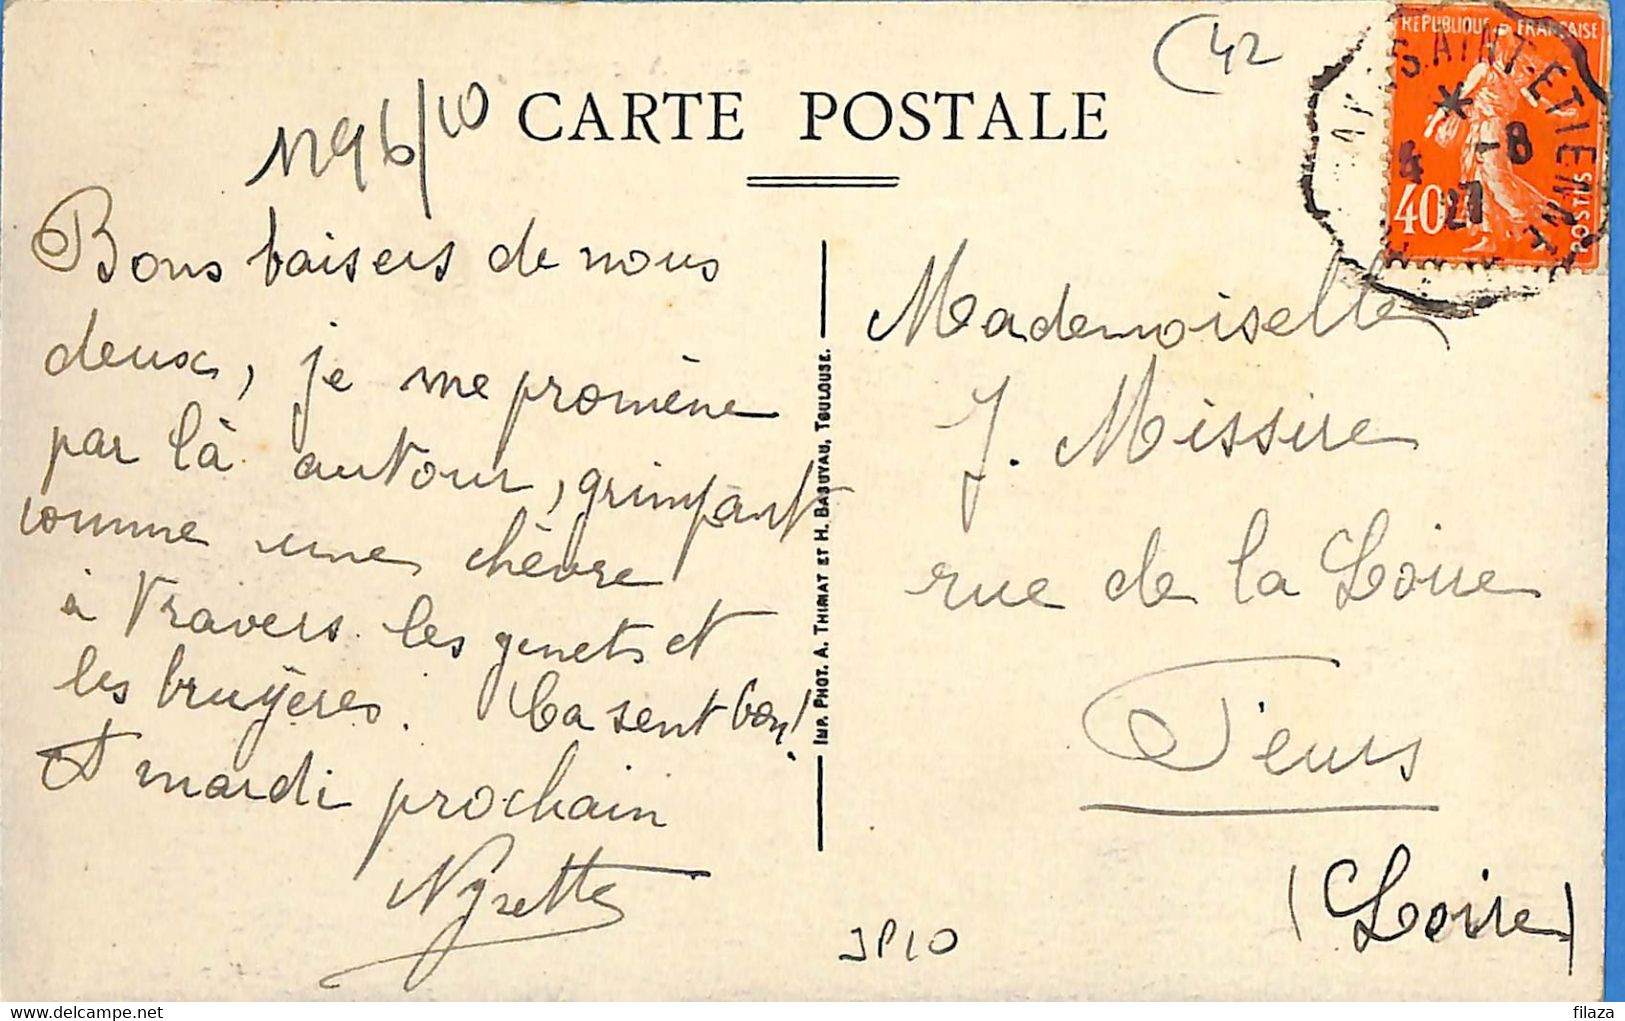 42
N96/10
CARTE POSTALE
RÉPUBLIQUE FRANÇAISE
SAINT-ETIENNE
*
4 -8
27
40
POSTES
Bons baisers de nous
deux, je me promène
par là autour, grimpant
comme une chèvre
à travers les genets et
les bruyères. Ca sent bon!
Et mardi prochain
Mademoiselle
J. Missire
rue de la Loire
Feurs
(Loire)
IMP. PHOT. A. THIRIAT ET H. BASUYAU, TOULOUSE.
JP10
filaza